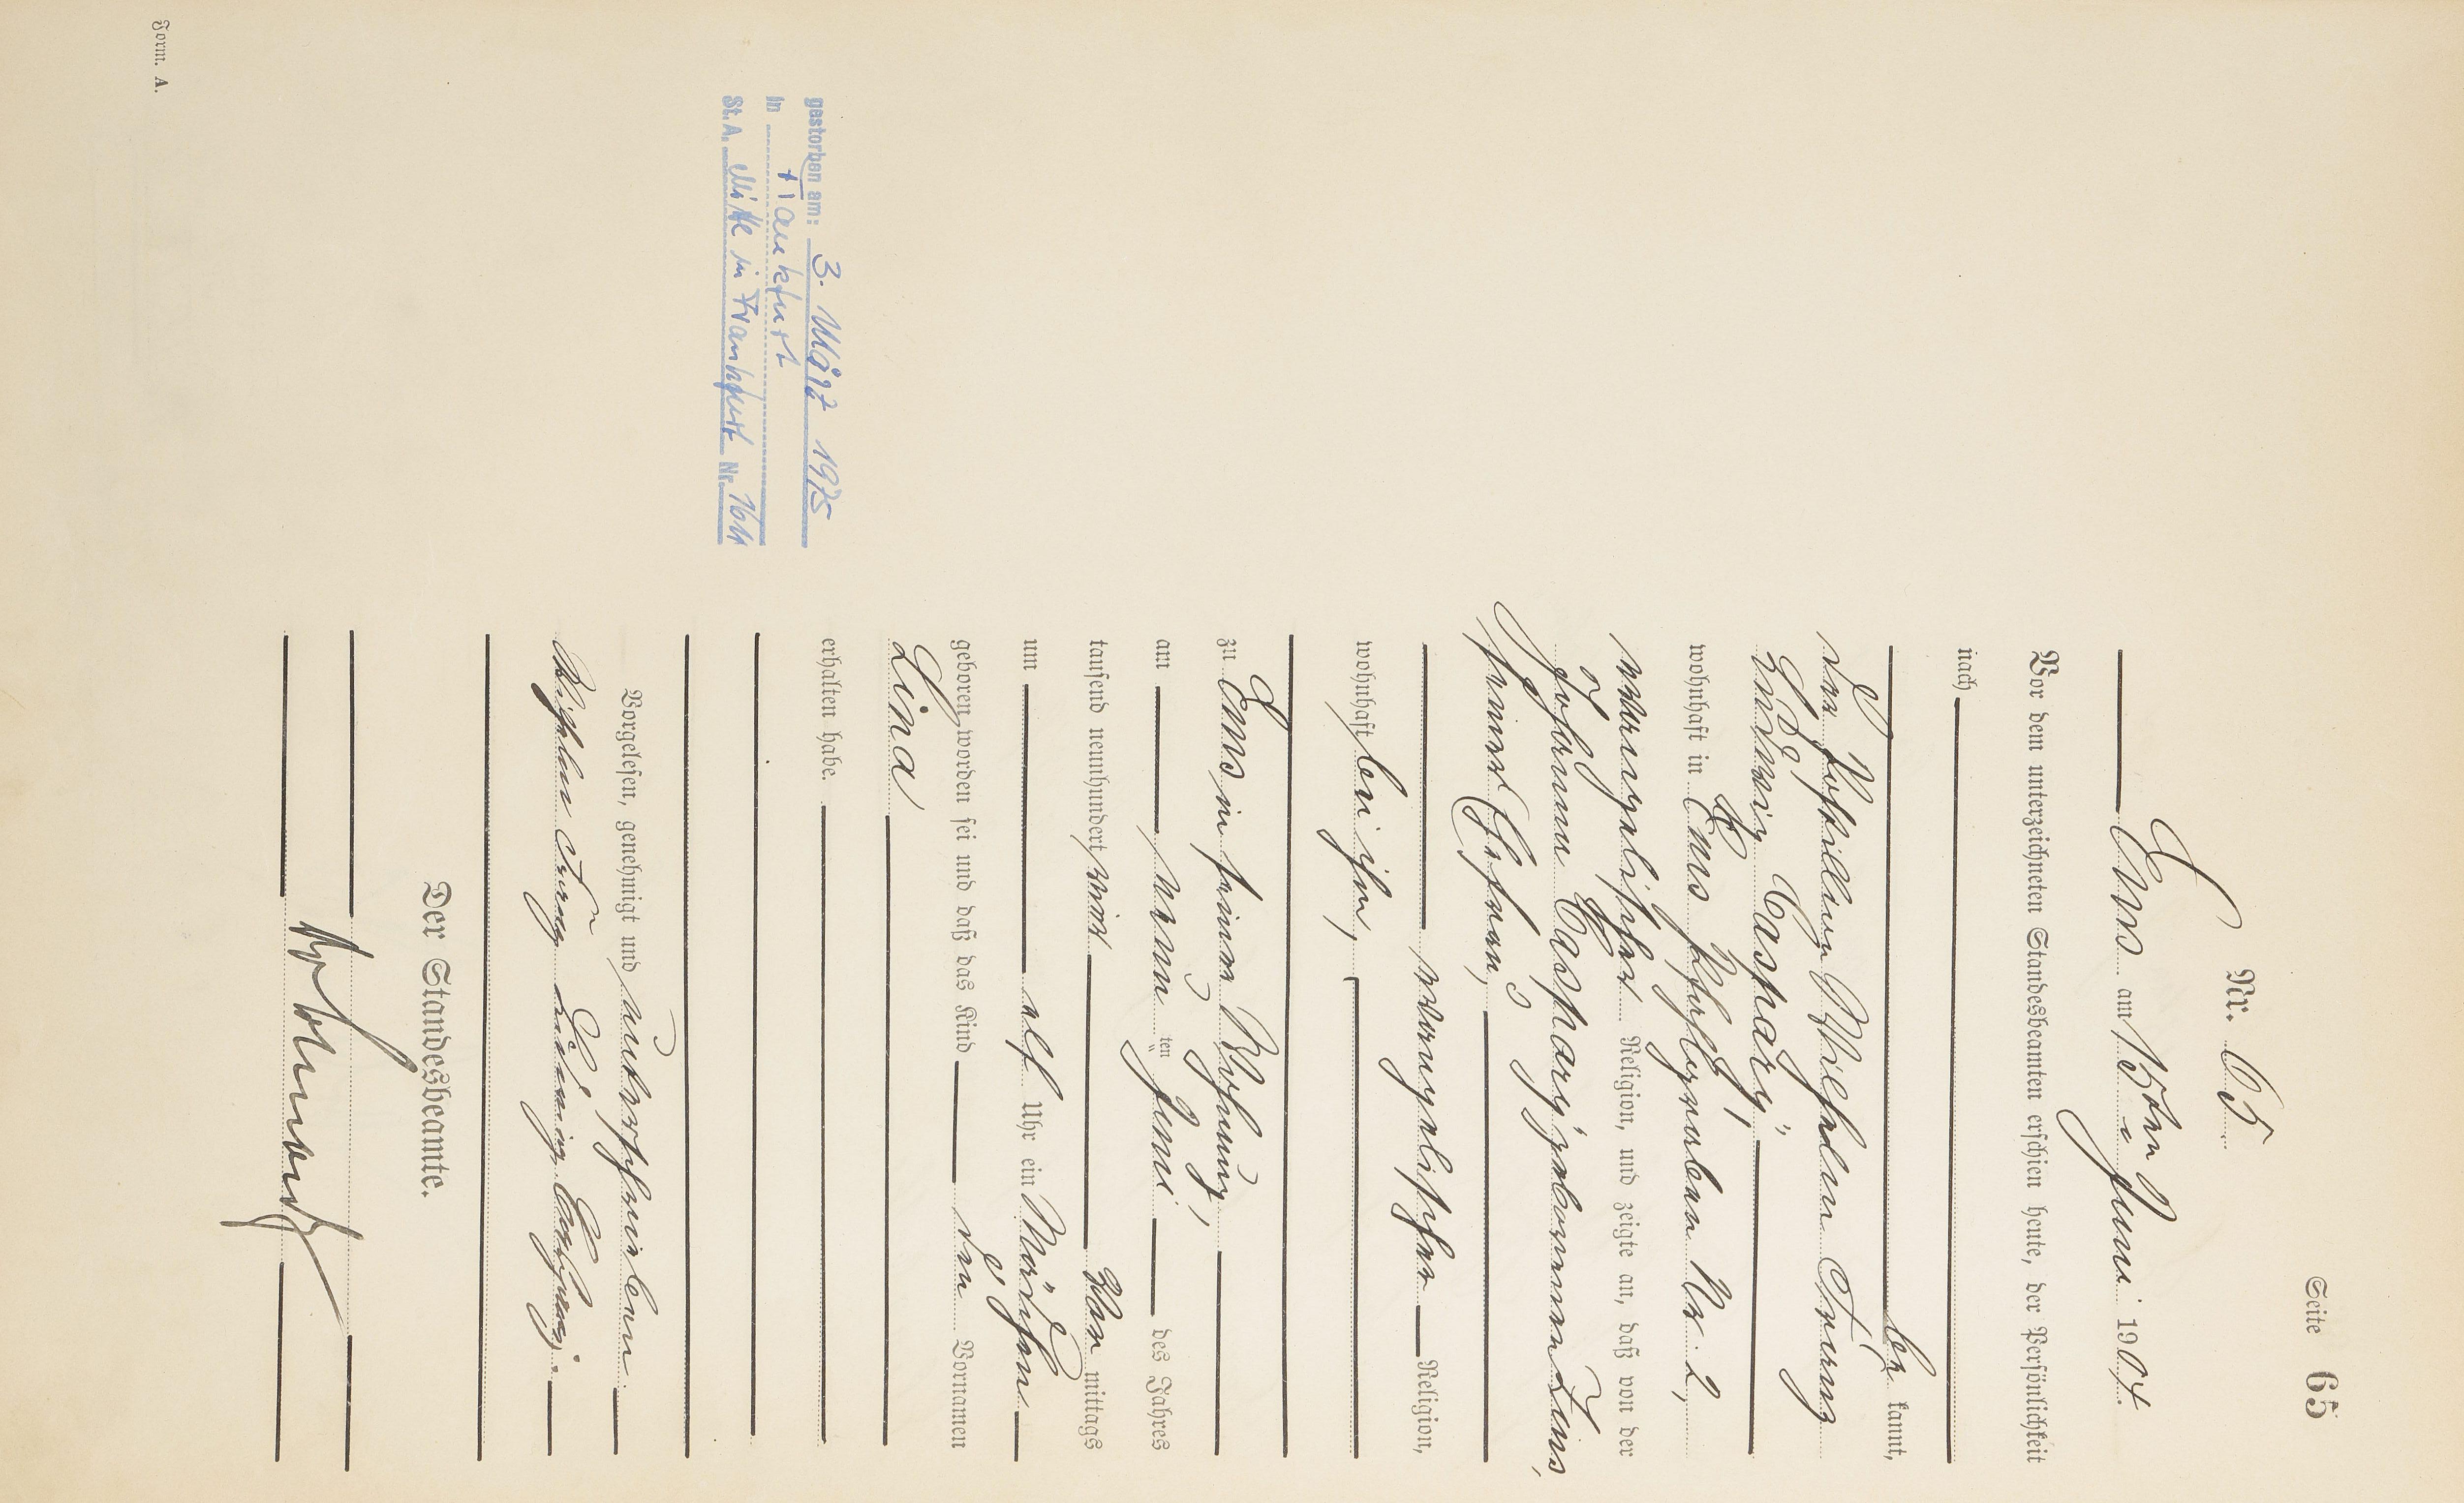 Seite 65
Nr. 65
Ems am 15ten Juni 1904.
Vor dem unterzeichneten Standesbeamten erschien heute, der Persönlichkeit
nach
be kannt,
der Postillon Wilhelm Franz
Ludwig Casparÿ,
wohnhaft in Ems
evangelischer Religion, und zeigte an, daß von der
Johanna Casparÿ geborenen
seiner Ehefrau,
evangelischer Religion,
wohnhaft bei ihm,
zu Ems in seiner Wohnung,
am neunten Juni des Jahres
tausend neunhundert vier Vor mittags
um elf Uhr ein Mädchen
geboren worden sei und daß das Kind den Vornamen
Lina
erhalten habe.
Vorgelesen, genehmigt und unterschrieben
Wilhelm Franz Ludwig Casparÿ.
Der Standesbeamte.
gestorben am: 3. März 1975
in Frankfurt
St.A. Mitte in Frankfurt Nr.
Form. A.